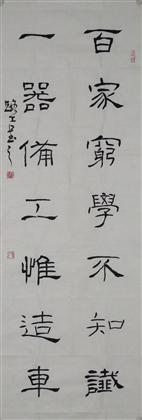 百家窮學不知讖
一器備工惟造車